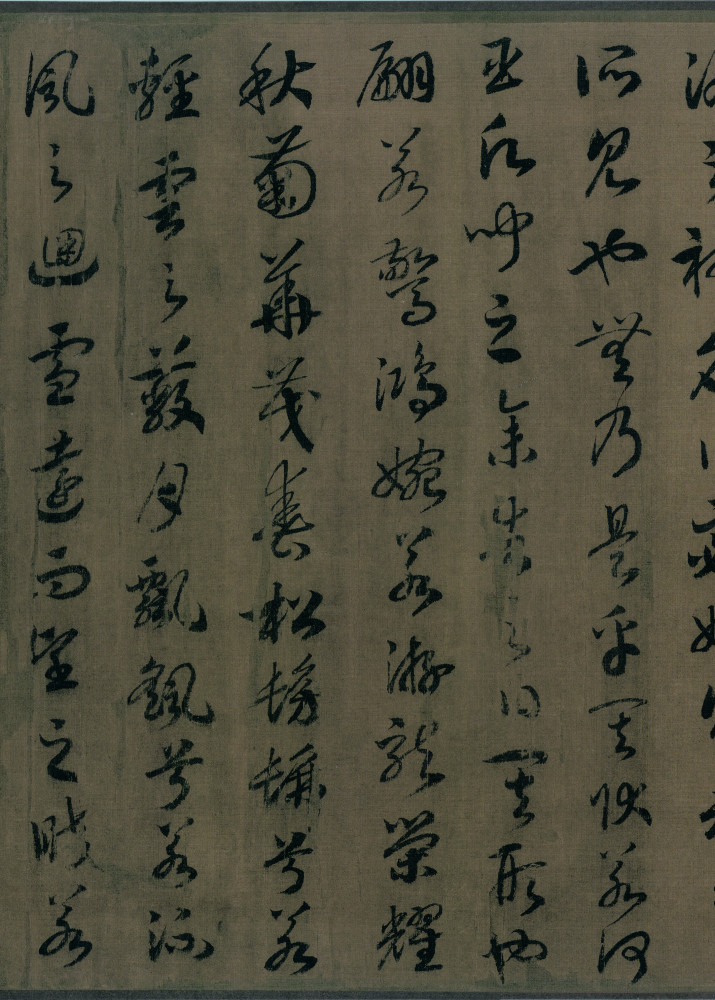 神名曰宓妃
所見也無乃是乎其狀若何
臣願聞之余告之曰其形也
翩若驚鴻婉若游龍榮耀
秋菊華茂春松髣髴兮若
輕雲之蔽月飄颻兮若流
風之迴雪遠而望之皎若